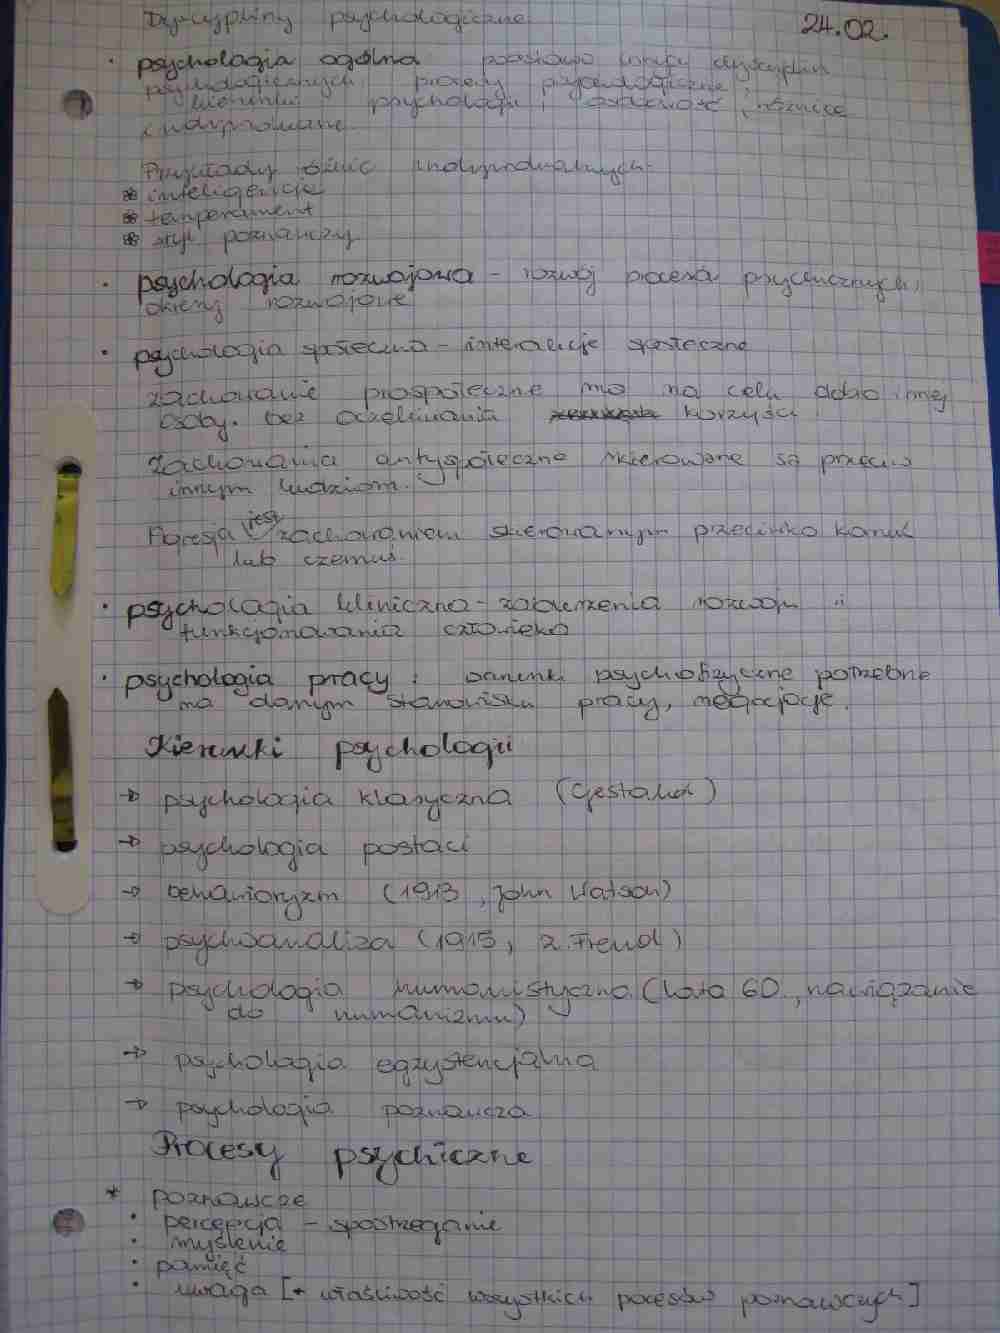 Dyscypliny psychologiczne 24.02.
· psychologia ogólna podstawa innych dyscyplin
psychologicznych procesy psychologiczne,
kierunki psychologii, osobowość, różnice
indywidualne
Przykłady różnic indywidualnych
* inteligencja
* temperament
* styl poznawczy
· psychologia rozwojowa - rozwój procesów psychicznych,
okresy rozwojowe
· psychologia społeczna - interakcje społeczne
zachowanie prospołeczne ma na celu dobro innej
osoby. bez oczekiwania korzyści
Zachowania antyspołeczne skierowane są przeciw
innym ludziom.
Agresja jest zachowaniem skierowanym przeciwko komuś
lub czemuś.
· psychologia kliniczna - zaburzenia rozwoju i
funkcjonowania człowieka
· psychologia pracy: warunki psychofizyczne potrzebne
na danym stanowisku pracy, negocjacje.
Kierunki psychologii
→ psychologia klasyczna (Gestalt)
→ psychologia postaci
→ behawioryzm (1913, John Watson)
→ psychoanaliza (1915, Z. Freud)
→ psychologia humanistyczna (lata 60., nawiązanie
do humanizmu)
→ psychologia egzystencjalna
→ psychologia poznawcza
Procesy psychiczne
* poznawcze
· percepcja - spostrzeganie
· myślenie
· pamięć
· uwaga [← właściwość wszystkich procesów poznawczych]